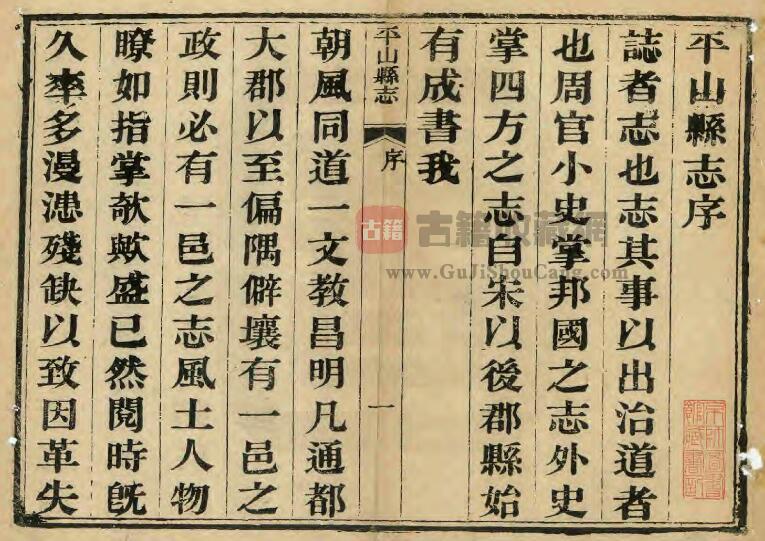 平山縣志序
誌者志也志其事以出治道者
也周官小史掌邦國之志外史
掌四方之志自宋以後郡縣始
有成書我
平山縣志
序
一
朝風同道一文教昌明凡通都
大郡以至偏隅僻壤有一邑之
政則必有一邑之志風土人物
瞭如指掌欹歟盛已然閱時旣
久率多漫漶殘缺以致因革失
古籍
古籍收藏網
www.GuJiShouCang.com